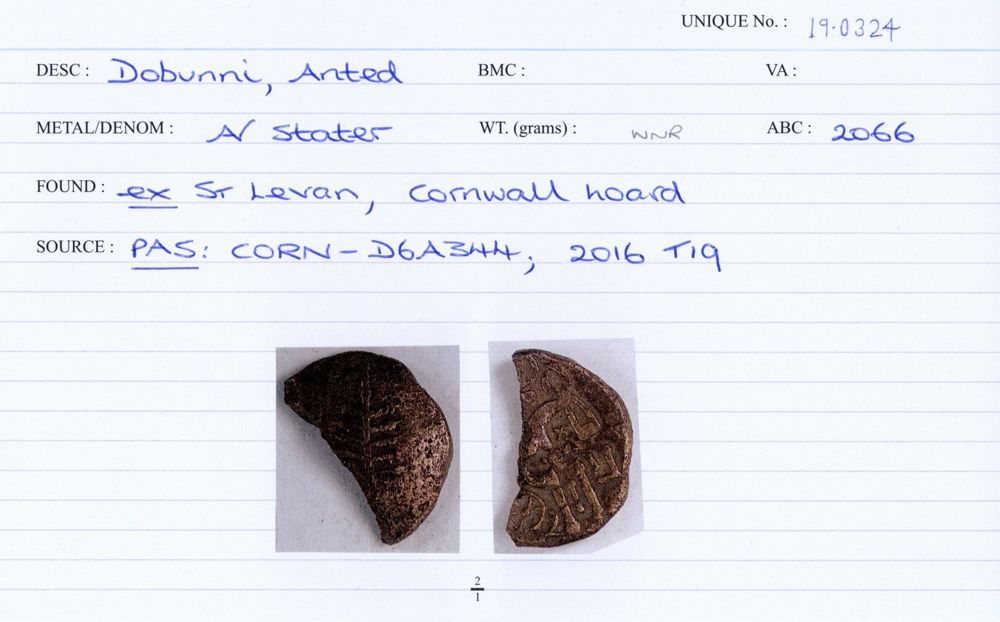 UNIQUE No. : 19.0324
DESC : Dobunni, Anted BMC : VA :
METAL/DENOM : N Stater WT. (grams) : WNR ABC : 2066
FOUND : ex St Levan, Cornwall hoard
SOURCE : PAS: CORN-D6A344; 2016 T19
2
1